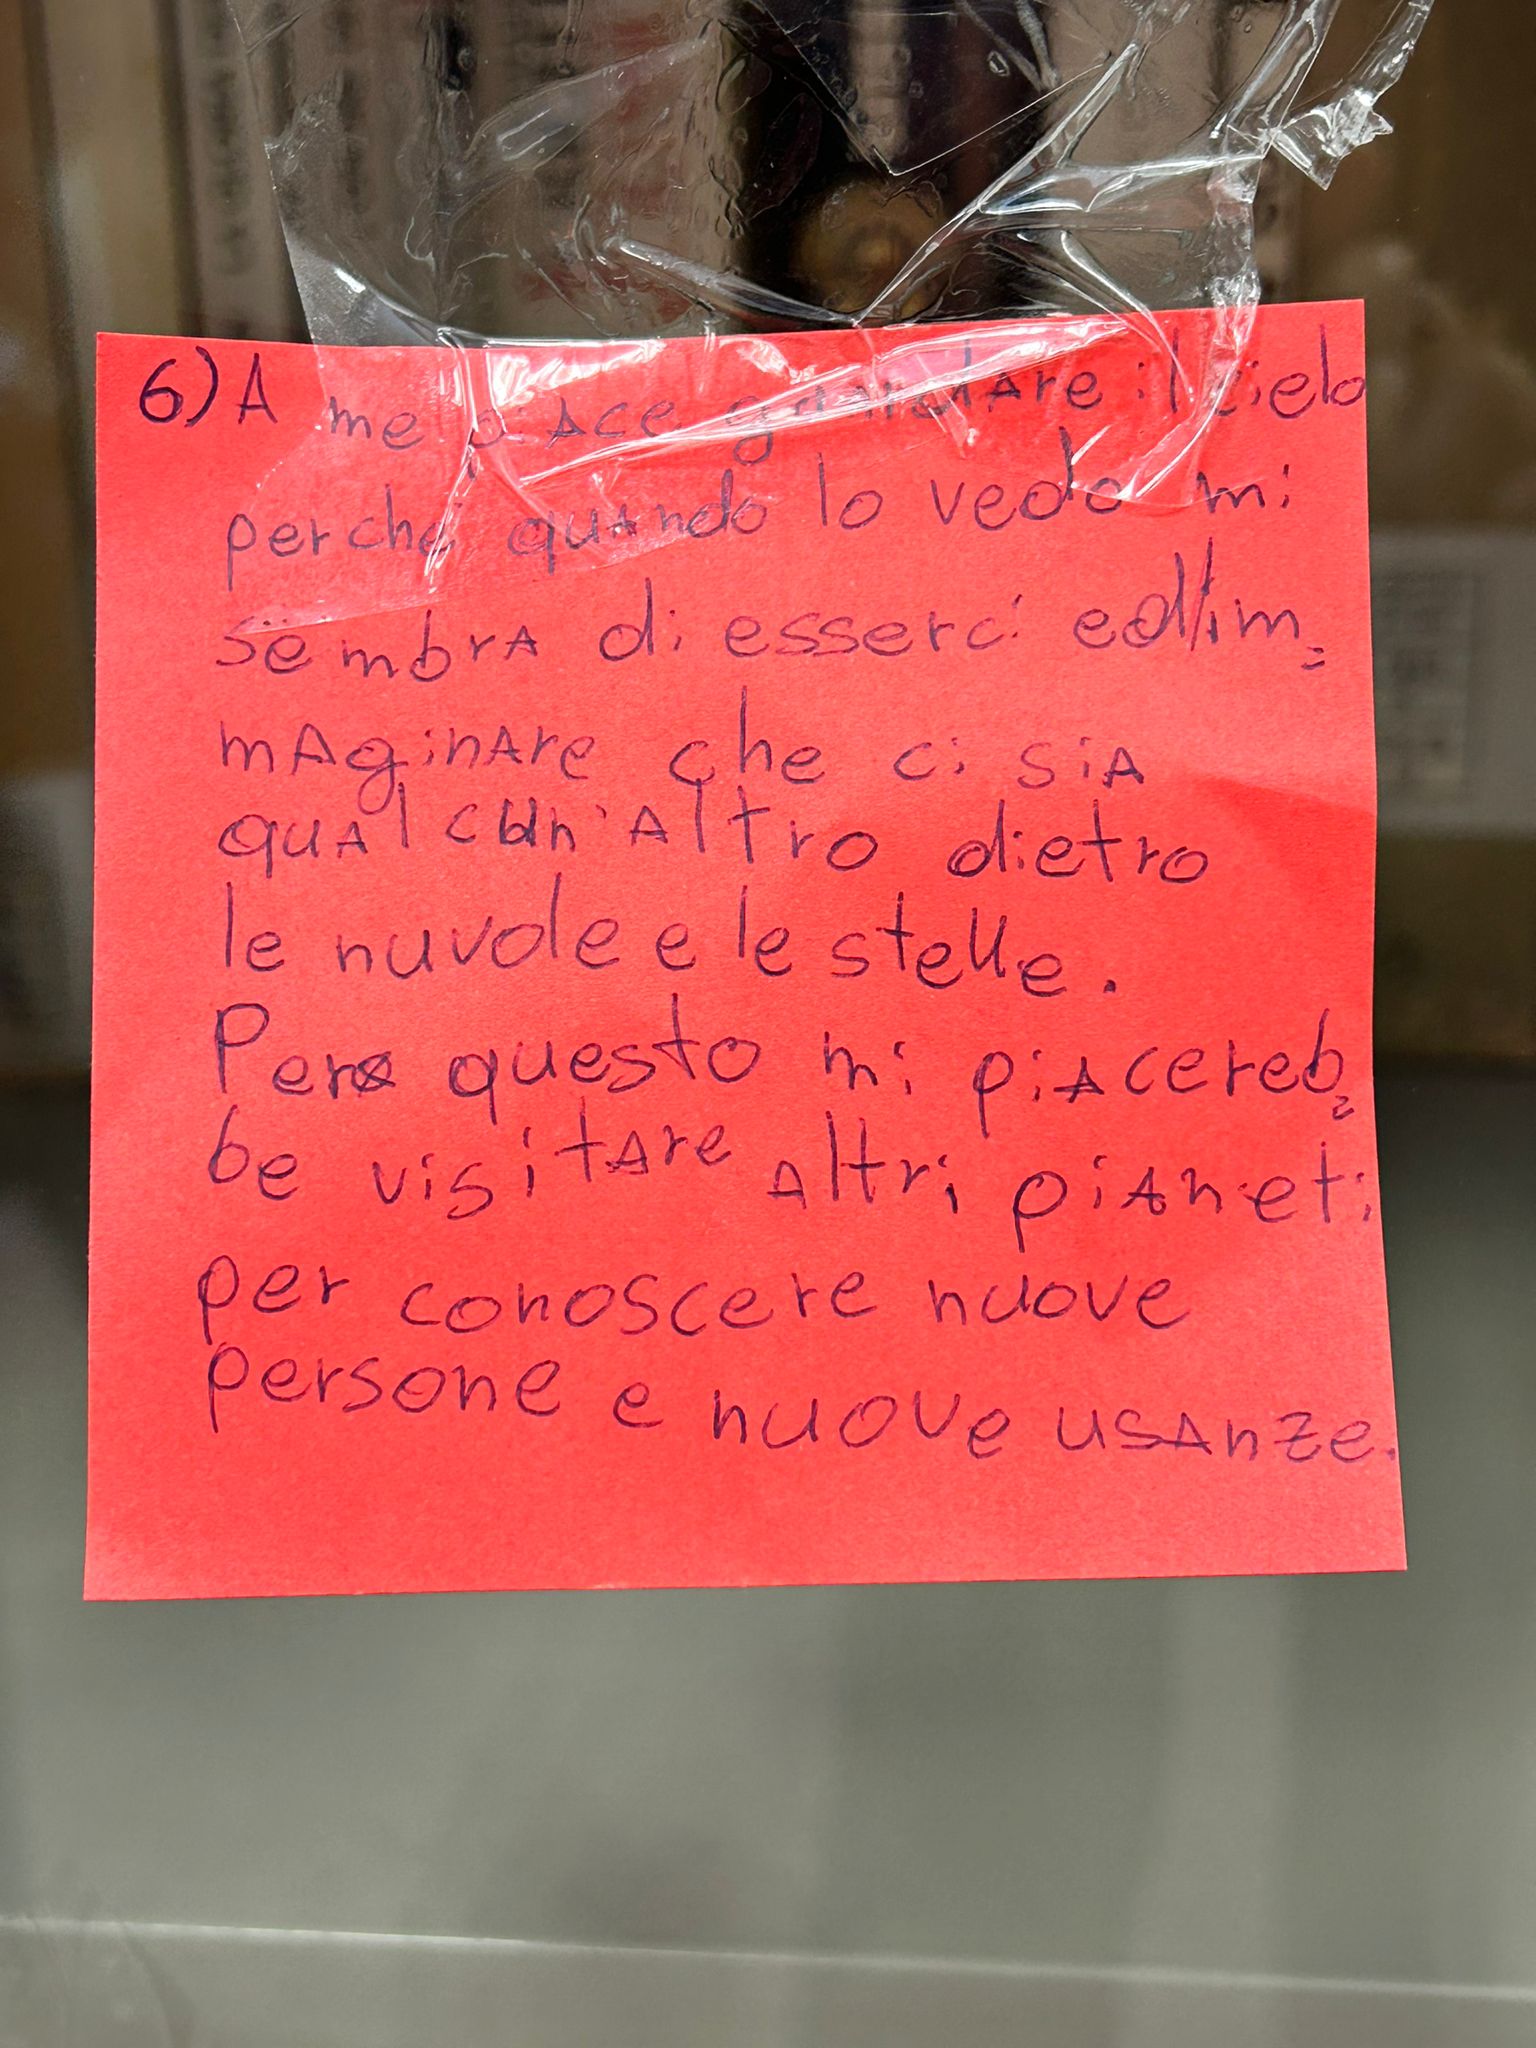 6) A me piace guardare il cielo
perché quando lo vedo mi
sembra di esserci ed im=
maginare che ci sia
qualcun'altro dietro
le nuvole e le stelle.
Per questo mi piacereb=
be visitare altri pianeti
per conoscere nuove
persone e nuove usanze.